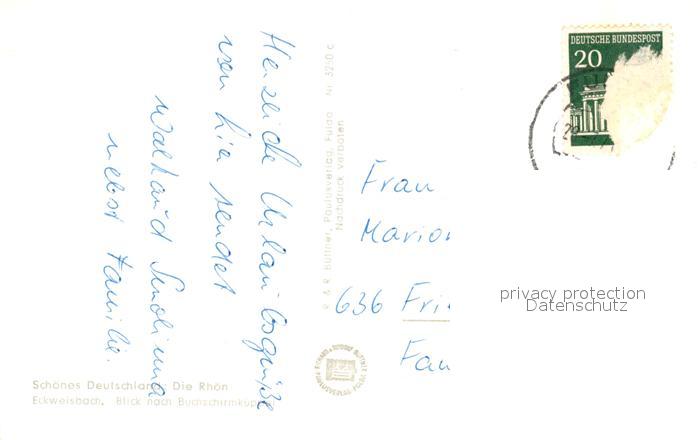 Herzliche Urlaubsgrüße
von hier sendet
nebst Familie.
R & R Büttner, Paulusverlag, Fulda Nr. 3250 c
Nachdruck verboten
DEUTSCHE BUNDESPOST
20
Frau
Marion
636 Fri
Fau
privacy protection
Datenschutz
Schönes Deutschland: Die Rhön
Eckweisbach, Blick nach Buchschirmküp